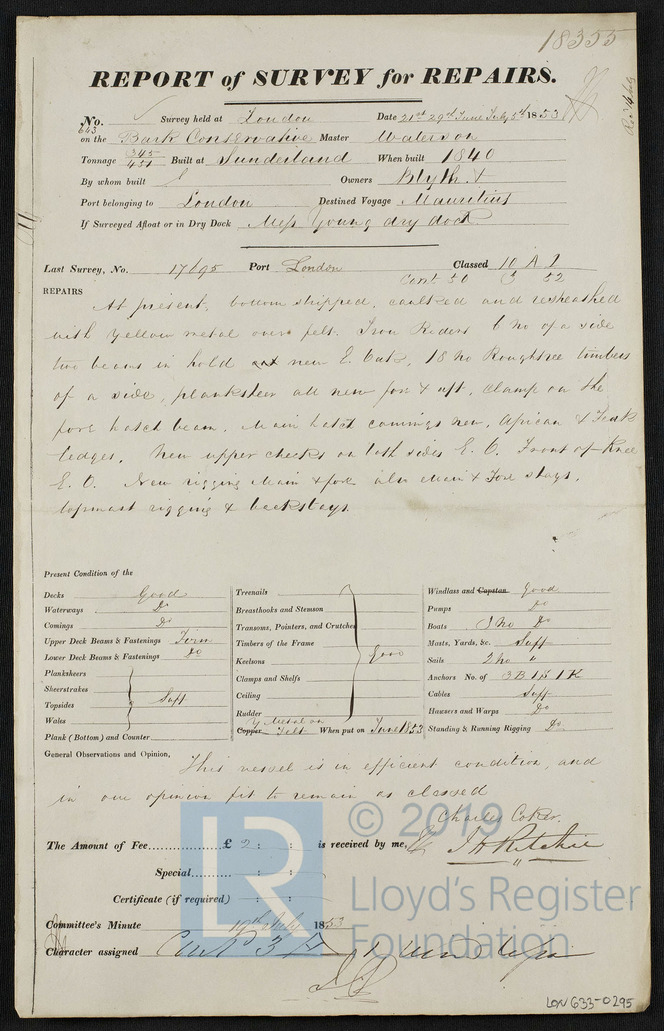 18355
REPORT of SURVEY for REPAIRS.
No. Survey held at London Date 21st 29th June July 5th 1853
643
on the Bark Conservative Master Waterson
Tonnage 345/451 Built at Sunderland When built 1840
By whom built Owners Blyth &
Port belonging to London Destined Voyage Mauritius
If Surveyed Afloat or in Dry Dock Messrs Young dry dock
Last Survey, No. 17695 Port London Classed 10 A 1
Cont 50 52
REPAIRS
At present, bottom stripped, caulked and resheathed
with yellow metal over felt. Iron Riders 6 no of a side
two beams in hold new E. Oak, 18 no Roughtree timbers
of a side, planksheer all new for & aft, clamp on the
fore hatch beam, Main hatch comings new, African &
ledges. New upper cheeks on both sides E. O. Front of Knee
E. O. New rigging Main & fore also Main & Fore stays,
topmast rigging & backstays
Present Condition of the
Decks Good
Waterways Do
Comings Do
Upper Deck Beams & Fastenings Firm
Lower Deck Beams & Fastenings Do
Planksheers
Sheerstrakes
Topsides Suff
Wales
Plank (Bottom) and Counter
Treenails
Breasthooks and Stemson
Transoms, Pointers, and Crutches
Timbers of the Frame
Keelsons Good
Clamps and Shelfs
Ceiling
Rudder
Y Metal on
Copper Felt When put on June 1853
Windlass and Capstan Good
Pumps Do
Boats 3 no Do
Masts, Yards, &c. Suff
Sails 2 no "
Anchors No. of 3 B 1 S 1 K
Cables Suff
Hawsers and Warps Do
Standing & Running Rigging Do
General Observations and Opinion, This vessel is in efficient condition, and
in our opinion fit to remain as classed
Charles Coker.
The Amount of Fee............... £ 2 : : is received by me, J H Ritchie
Special............... : :
Certificate (if required) : :
Committee's Minute 19th July 1853
Character assigned
© 2019
LR
Lloyd's Register
Foundation
LON 633-0295